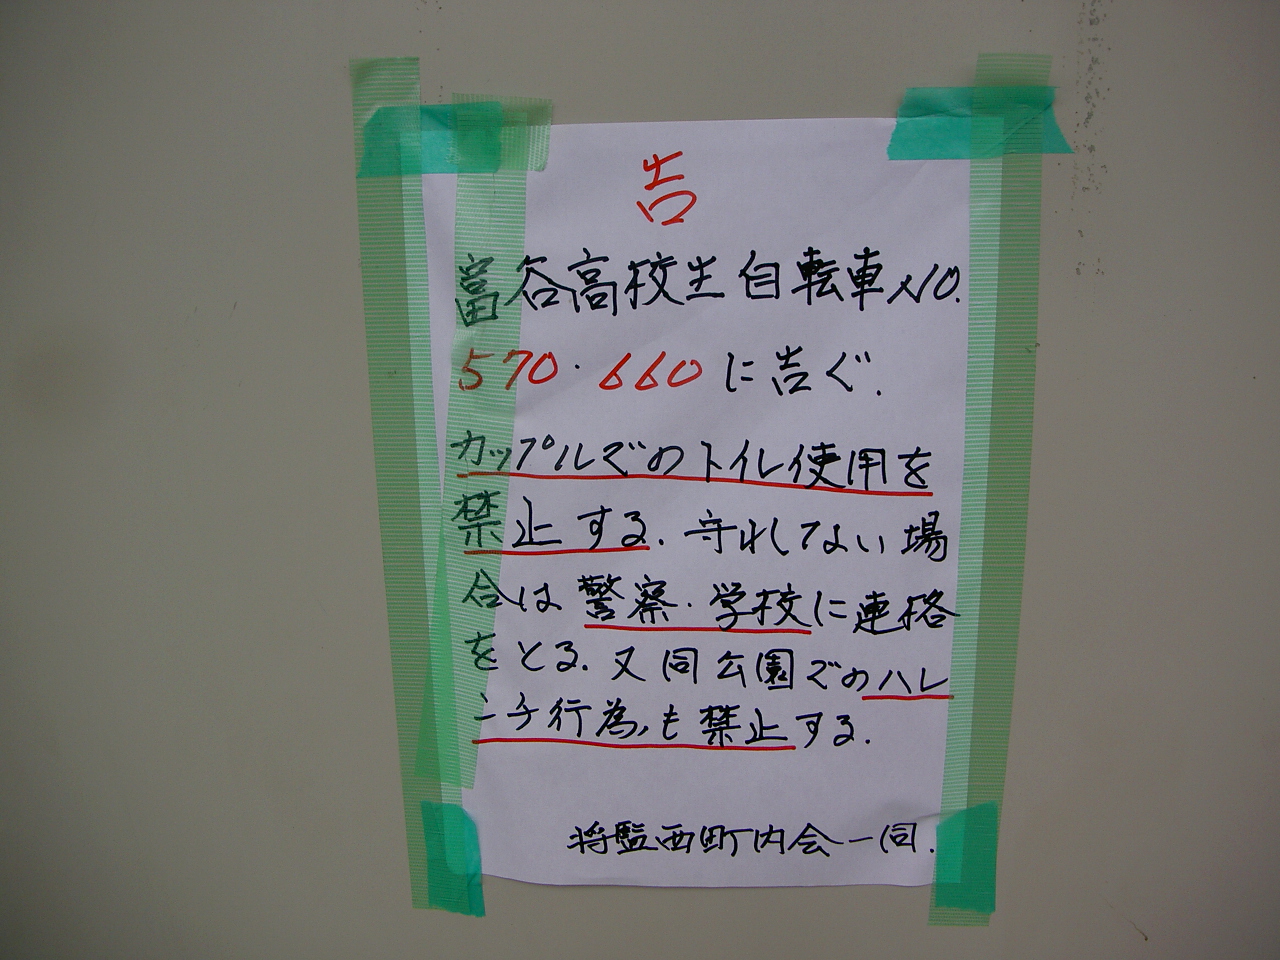 告
富谷高校生自転車NO.
570・660に告ぐ.
カップルでのトイレ使用を
禁止する.守れしてない場
合は警察・学校に連絡
をとる.又同公園でのハレ
ンチ行為も禁止する.
将監西町内会一同.